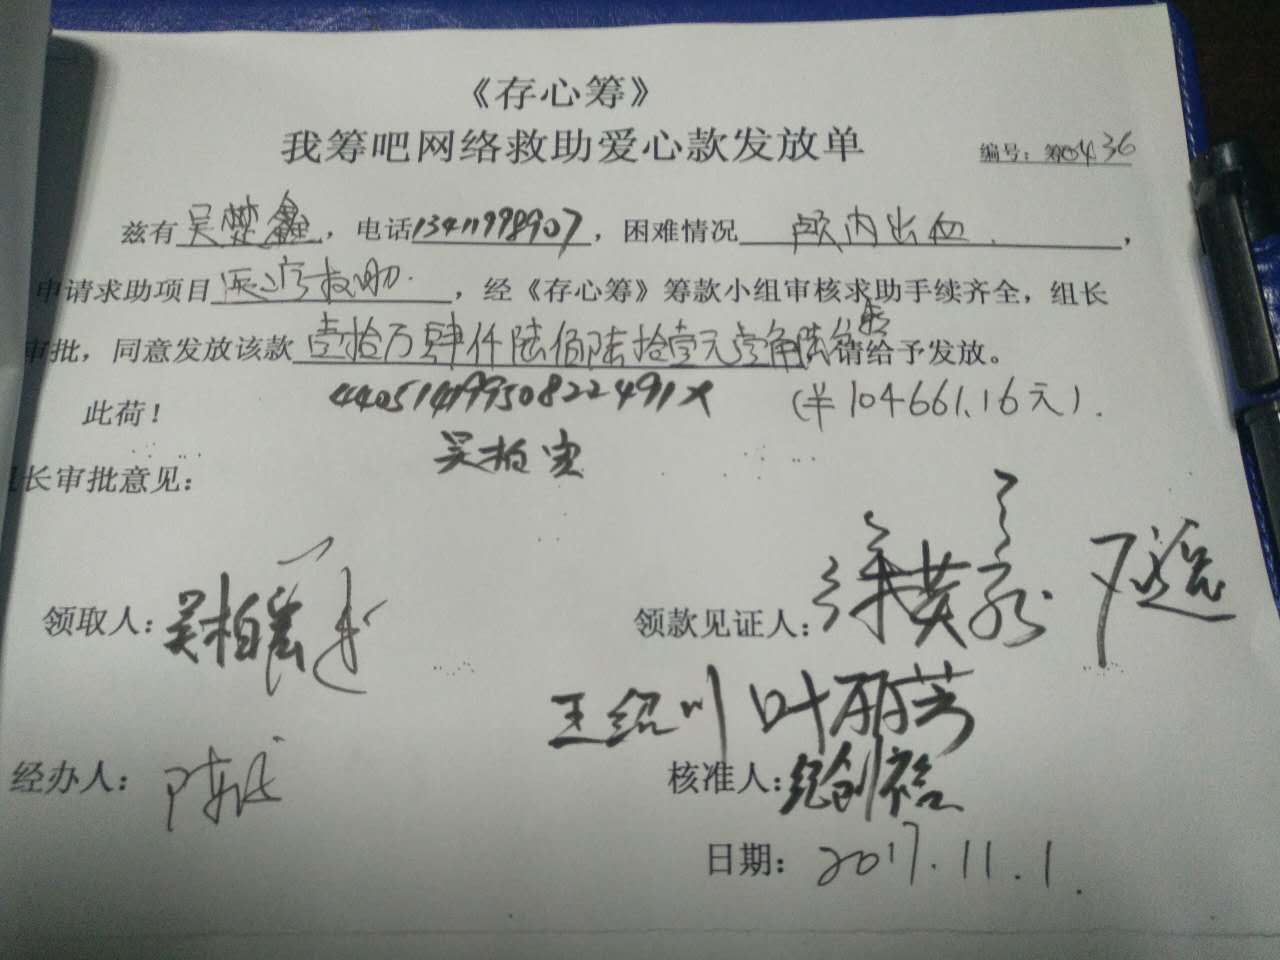 《存心筹》
我筹吧网络救助爱心款发放单
编号：筹00436
兹有吴楚鑫，电话13411998907，困难情况 颅内出血．，
申请求助项目医疗救助．，经《存心筹》筹款小组审核求助手续齐全，组长
审批，同意发放该款壹拾万肆仟陆佰陆拾壹元壹角陆分 请给予发放。
44051419950822491X （¥104661.16元）．
此荷！
吴柏宏
长审批意见：
领取人：吴柏宏 领款见证人：
王绍川 叶丽芳
经办人：陈 核准人：纪创裕
日期：2017.11.1.